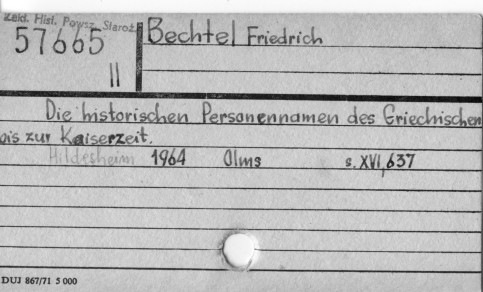 Zakł. Hist. Powsz. Staroż.
57665 Bechtel Friedrich
II
Die historischen Personennamen des Griechischen
bis zur Kaiserzeit.
Hildesheim 1964 Olms s. XVI, 637
DUJ 867/71 5 000